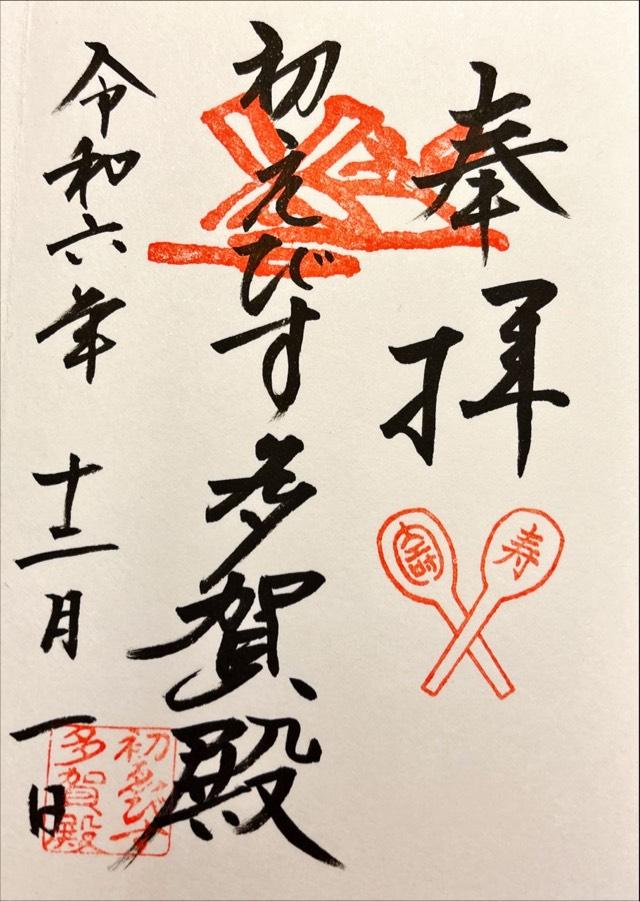 奉拝
寿
初えびす多賀殿
初ゑびす
多賀殿
令和六年十二月一日